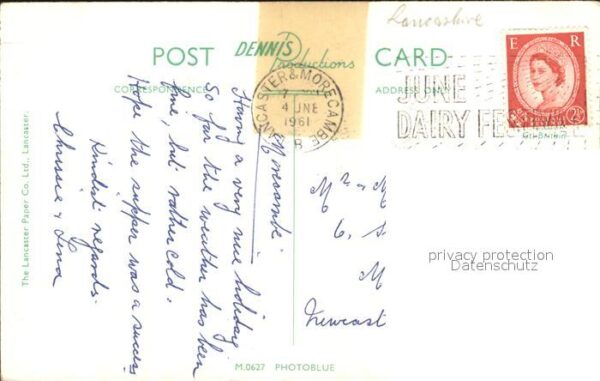 Lancashire
POST DENNIS Productions CARD
CORRESPONDENCE
ADDRESS ONLY
LANCASTER & MORECAMBE
7
4 JUNE
1961
B
JUNE
DAIRY FES
E R
2½
Morecambe
Having a very nice holiday
So far the weather has been
fine, but rather cold.
Hope the supper was a success
Kindest regards.
Chrissie &
Mr & M
6, S
M
Newcast
privacy protection
Datenschutz
The Lancaster Paper Co. Ltd., Lancaster.
M.0627 PHOTOBLUE